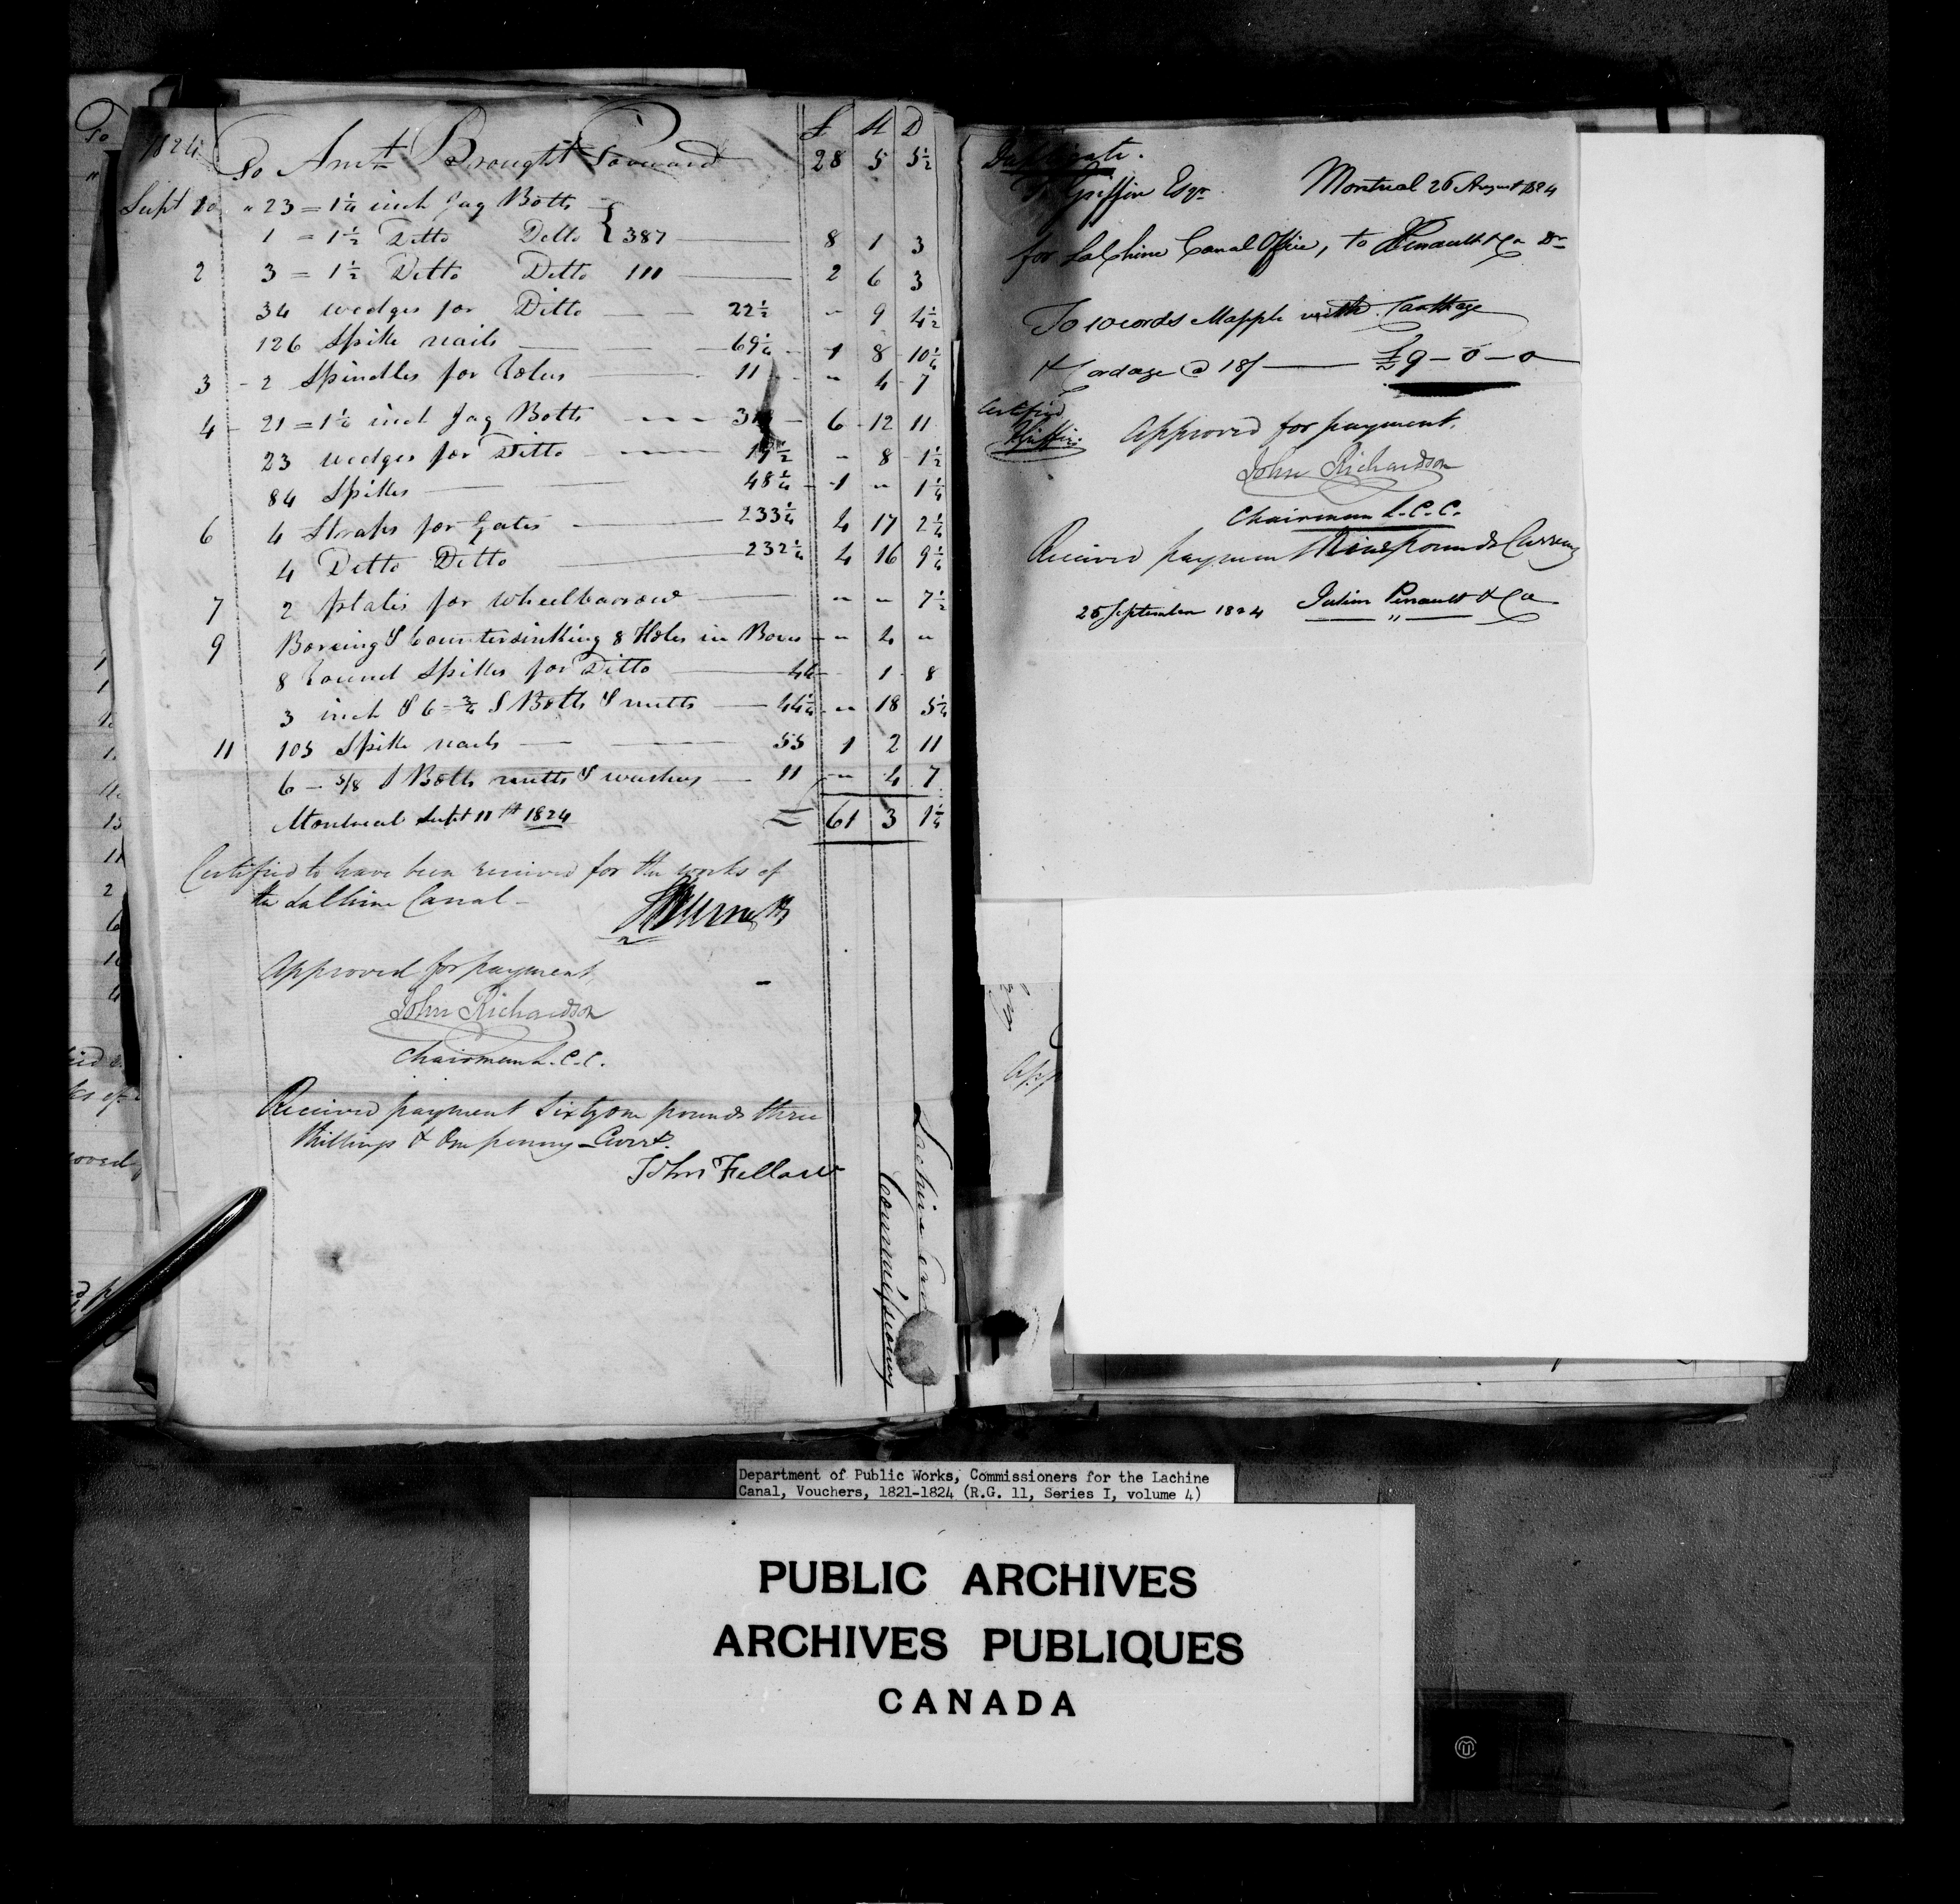 1824 To Amt Brought Forward 28 5 5½
£ S D
Sept 1 " 23 = 1¼ inch Jag Botts
1 = 1½ Ditto Ditto } 387 8 1 3
2 3 = 1½ Ditto Ditto 111 2 6 3
34 wedges for Ditto 22½ " 9 4½
126 Spike nails 69¼ 1 8 10¼
3 - 2 Spindles for 11 " 4 7
4 - 21 = 1¼ inch Jag Botts 6 12 11
23 wedges for Ditto 19½ " 8 1½
84 Spikes 48¼ 1 " 1¼
6 4 Straps for Gates 233¼ 4 17 2¼
4 Ditto Ditto 232¼ 4 16 9¼
7 2 plates for wheelbarrow " " 7½
9 Boreing & Countersinking 8 Holes in " 4 "
8 Round Spikes for Ditto 4 1 8
3 inch & 6 = ¾ S Botts & nutts 44¼ " 18 5¼
11 105 Spike nails 55 1 2 11
6 - 5/8 S Botts nutts & washers 11 " 4 7
Montreal Sept 11th 1824 = 61 3 1¼
Certified to have been received for the works of
the LaChine Canal -
Approved for payment,
John Richardson
Chairman L.C.C.
Received payment Sixty one pounds three
shillings & One penny Curr.
John Fellow
Lachine
Commissioners
Duplicate.
T. Griffin Esqr. Montreal 26 August 1824
for LaChine Canal Office, to Penault & Co Dr
To 10 cords Mapple with Carthage
& Cordage @ 18/ £9 - 0 - 0
Certified
TGriffin
Approved for payment,
John Richardson
Chairman L.C.C.
Received payment Nine pounds Currency
25 September 1824 Julien Perrault & Co
App
Department of Public Works, Commissioners for the Lachine
Canal, Vouchers, 1821-1824 (R.G. 11, Series I, volume 4)
PUBLIC ARCHIVES
ARCHIVES PUBLIQUES
CANADA